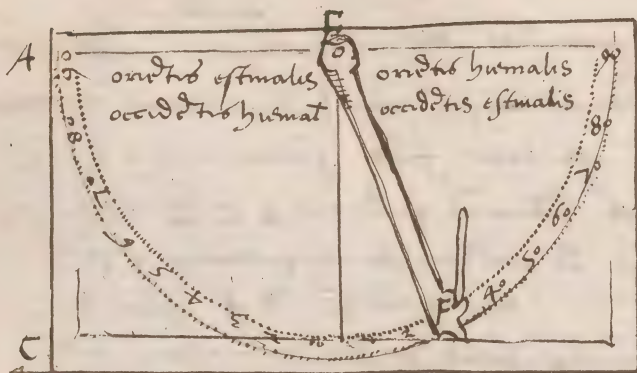 E
A
oriētis estiualis
occidētis hiemal
oriētis hiemalis
occidētis estiualis
90 80 7 6 5 4 3
40 50 60 7 80 90
F
C